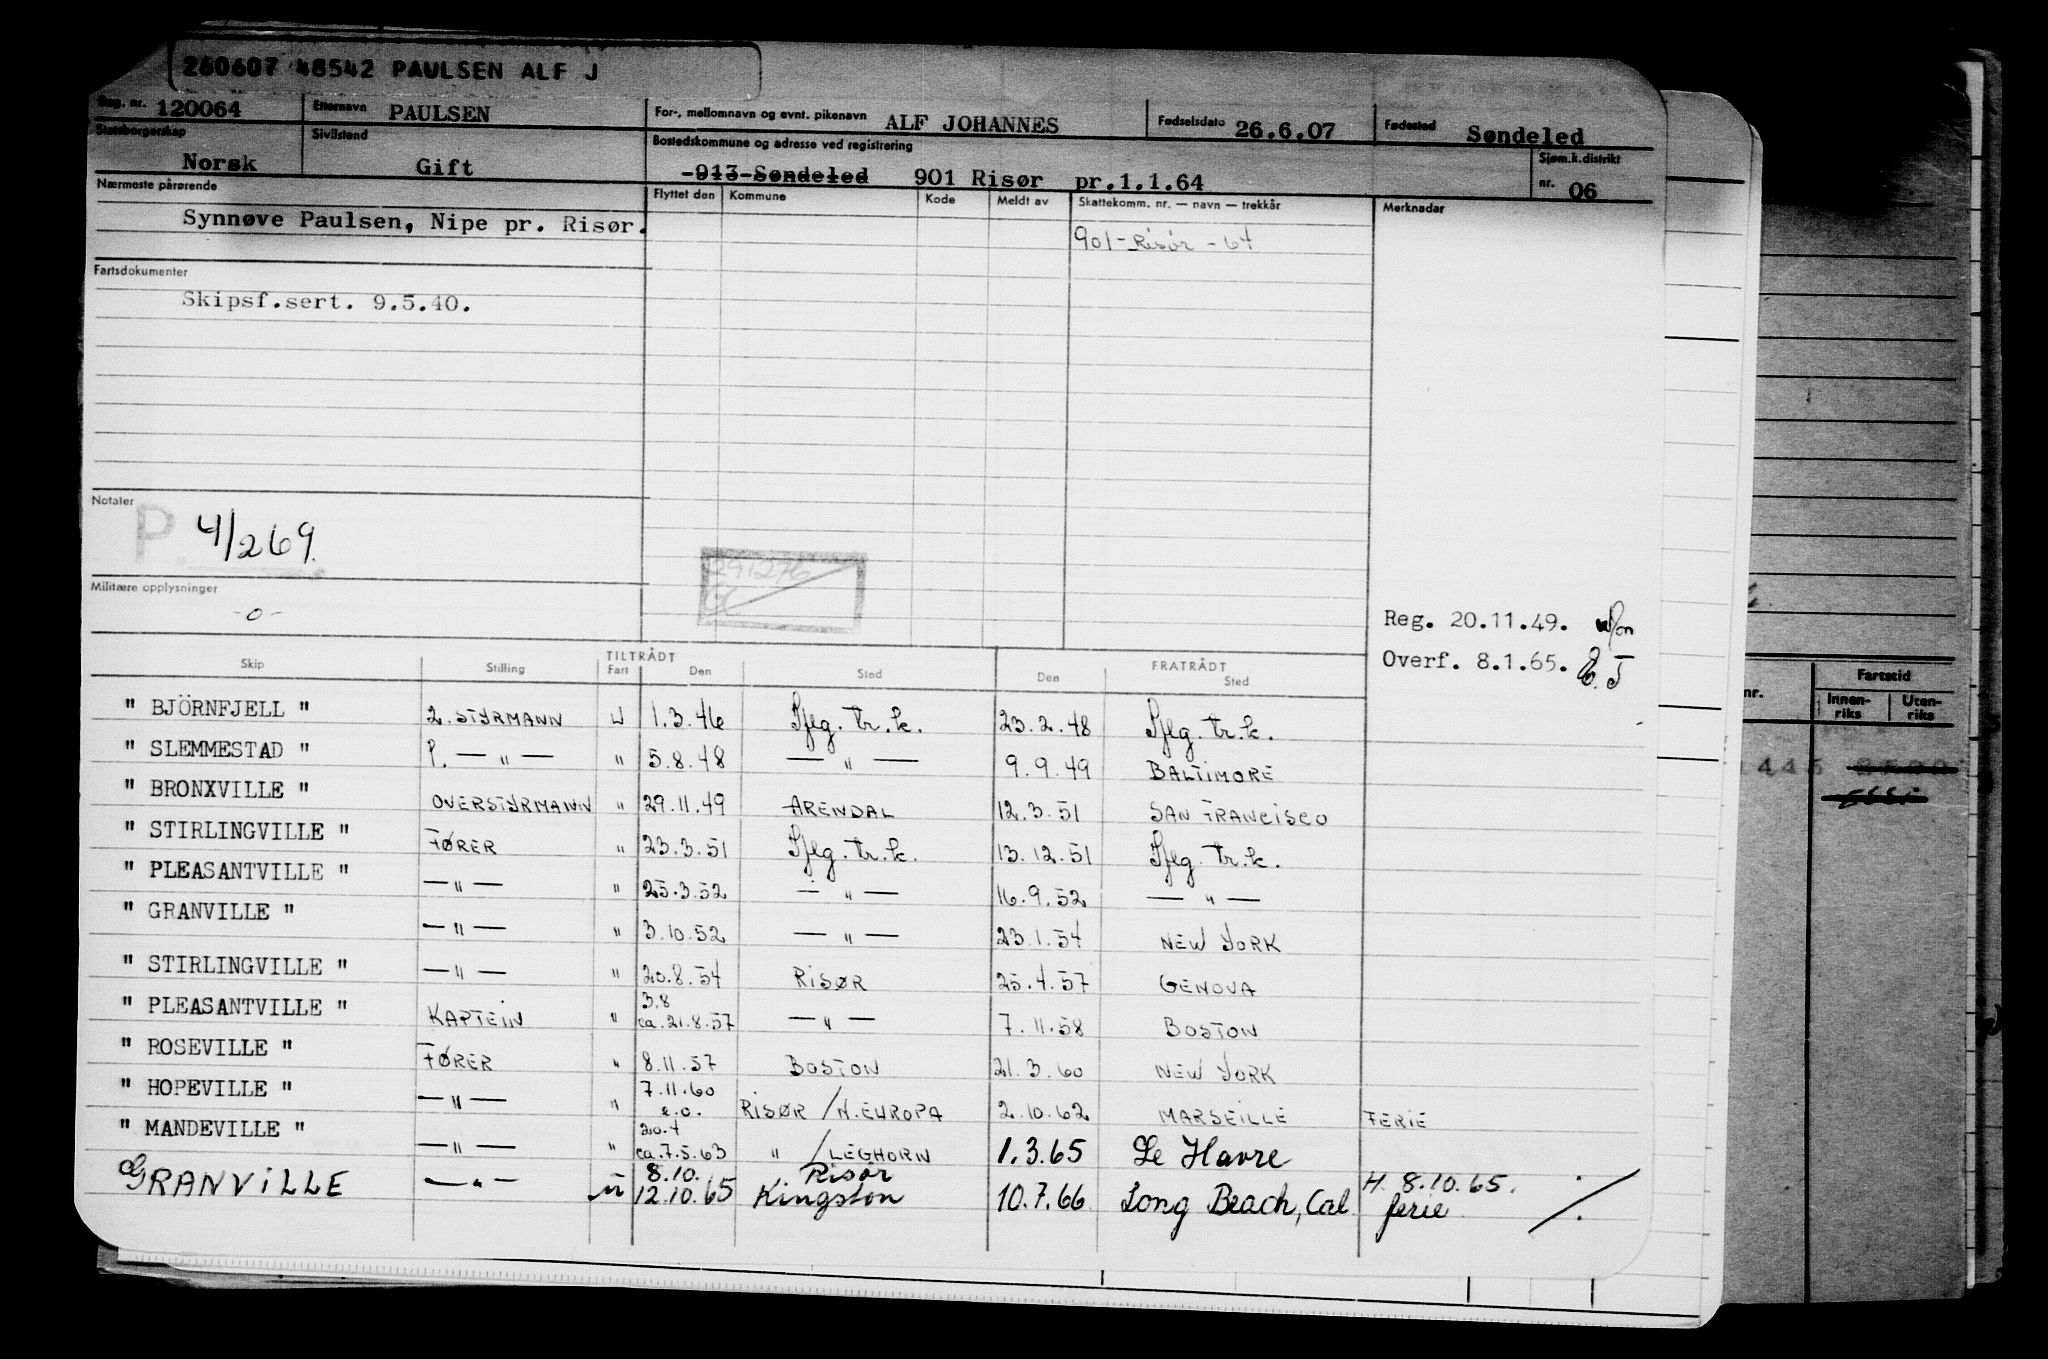 260607 48542 PAULSEN ALF J
Reg. nr. 120064 Etternavn PAULSEN For-, mellomnavn og evnt. pikenavn ALF JOHANNES Fødselsdato 26.6.07 Fødested Søndeled
Statsborgerskap Norsk Sivilstand Gift Bostedskommune og adresse ved registrering 913 Søndeled 901 Risør pr.1.1.64 Sjøm.k.distrikt nr. 06
Nærmeste pårørende Flyttet den Kommune Kode Meldt av Skattekomm. nr. — navn — trekkår Merknader
Synnøve Paulsen, Nipe pr. Risør. 901 - Risør - 64
Fartsdokumenter
Skipsf.sert. 9.5.40.
Notater
P. 4/269.
291276
Militære opplysninger
-0-
Reg. 20.11.49.
Overf. 8.1.65.
TILTRÅDT FRATRÅDT
Skip Stilling Fart Den Sted Den Sted
" BJÖRNFJELL " 2. STYRMANN U 1.3.46 Sjfg. tr.k. 23.2.48 Sjfg. tr.k.
" SLEMMESTAD " 1. — " — " 5.8.48 — " — 9.9.49 BALTIMORE
" BRONXVILLE " OVERSTYRMANN " 29.11.49 ARENDAL 12.3.51 SAN FRANCISCO
" STIRLINGVILLE " FØRER " 23.3.51 Sjfg. tr.k. 13.12.51 Sjfg. tr.k.
" PLEASANTVILLE " — " — " 25.3.52 — " — 16.9.52 — " —
" GRANVILLE " — " — " 3.10.52 — " — 23.1.54 NEW YORK
" STIRLINGVILLE " — " — " 20.8.54 RISØR 25.4.57 GENOVA
" PLEASANTVILLE " KAPTEIN " 3.8 ca. 21.8.57 — " — 7.11.58 BOSTON
" ROSEVILLE " FØRER " 8.11.57 BOSTON 21.3.60 NEW YORK
" HOPEVILLE " — " — " 7.11.60 e.o. RISØR / N.EUROPA 2.10.62 MARSEILLE FERIE
" MANDEVILLE " — " — " 20.4 ca. 7.5.63 " / LEGHORN 1.3.65 Le Havre
GRANVILLE — " — u 8.10. 12.10.65 Risør Kingston 10.7.66 Long Beach, Cal. H. 8.10.65. ferie
nr. Fartstid
Innen-riks Uten-riks